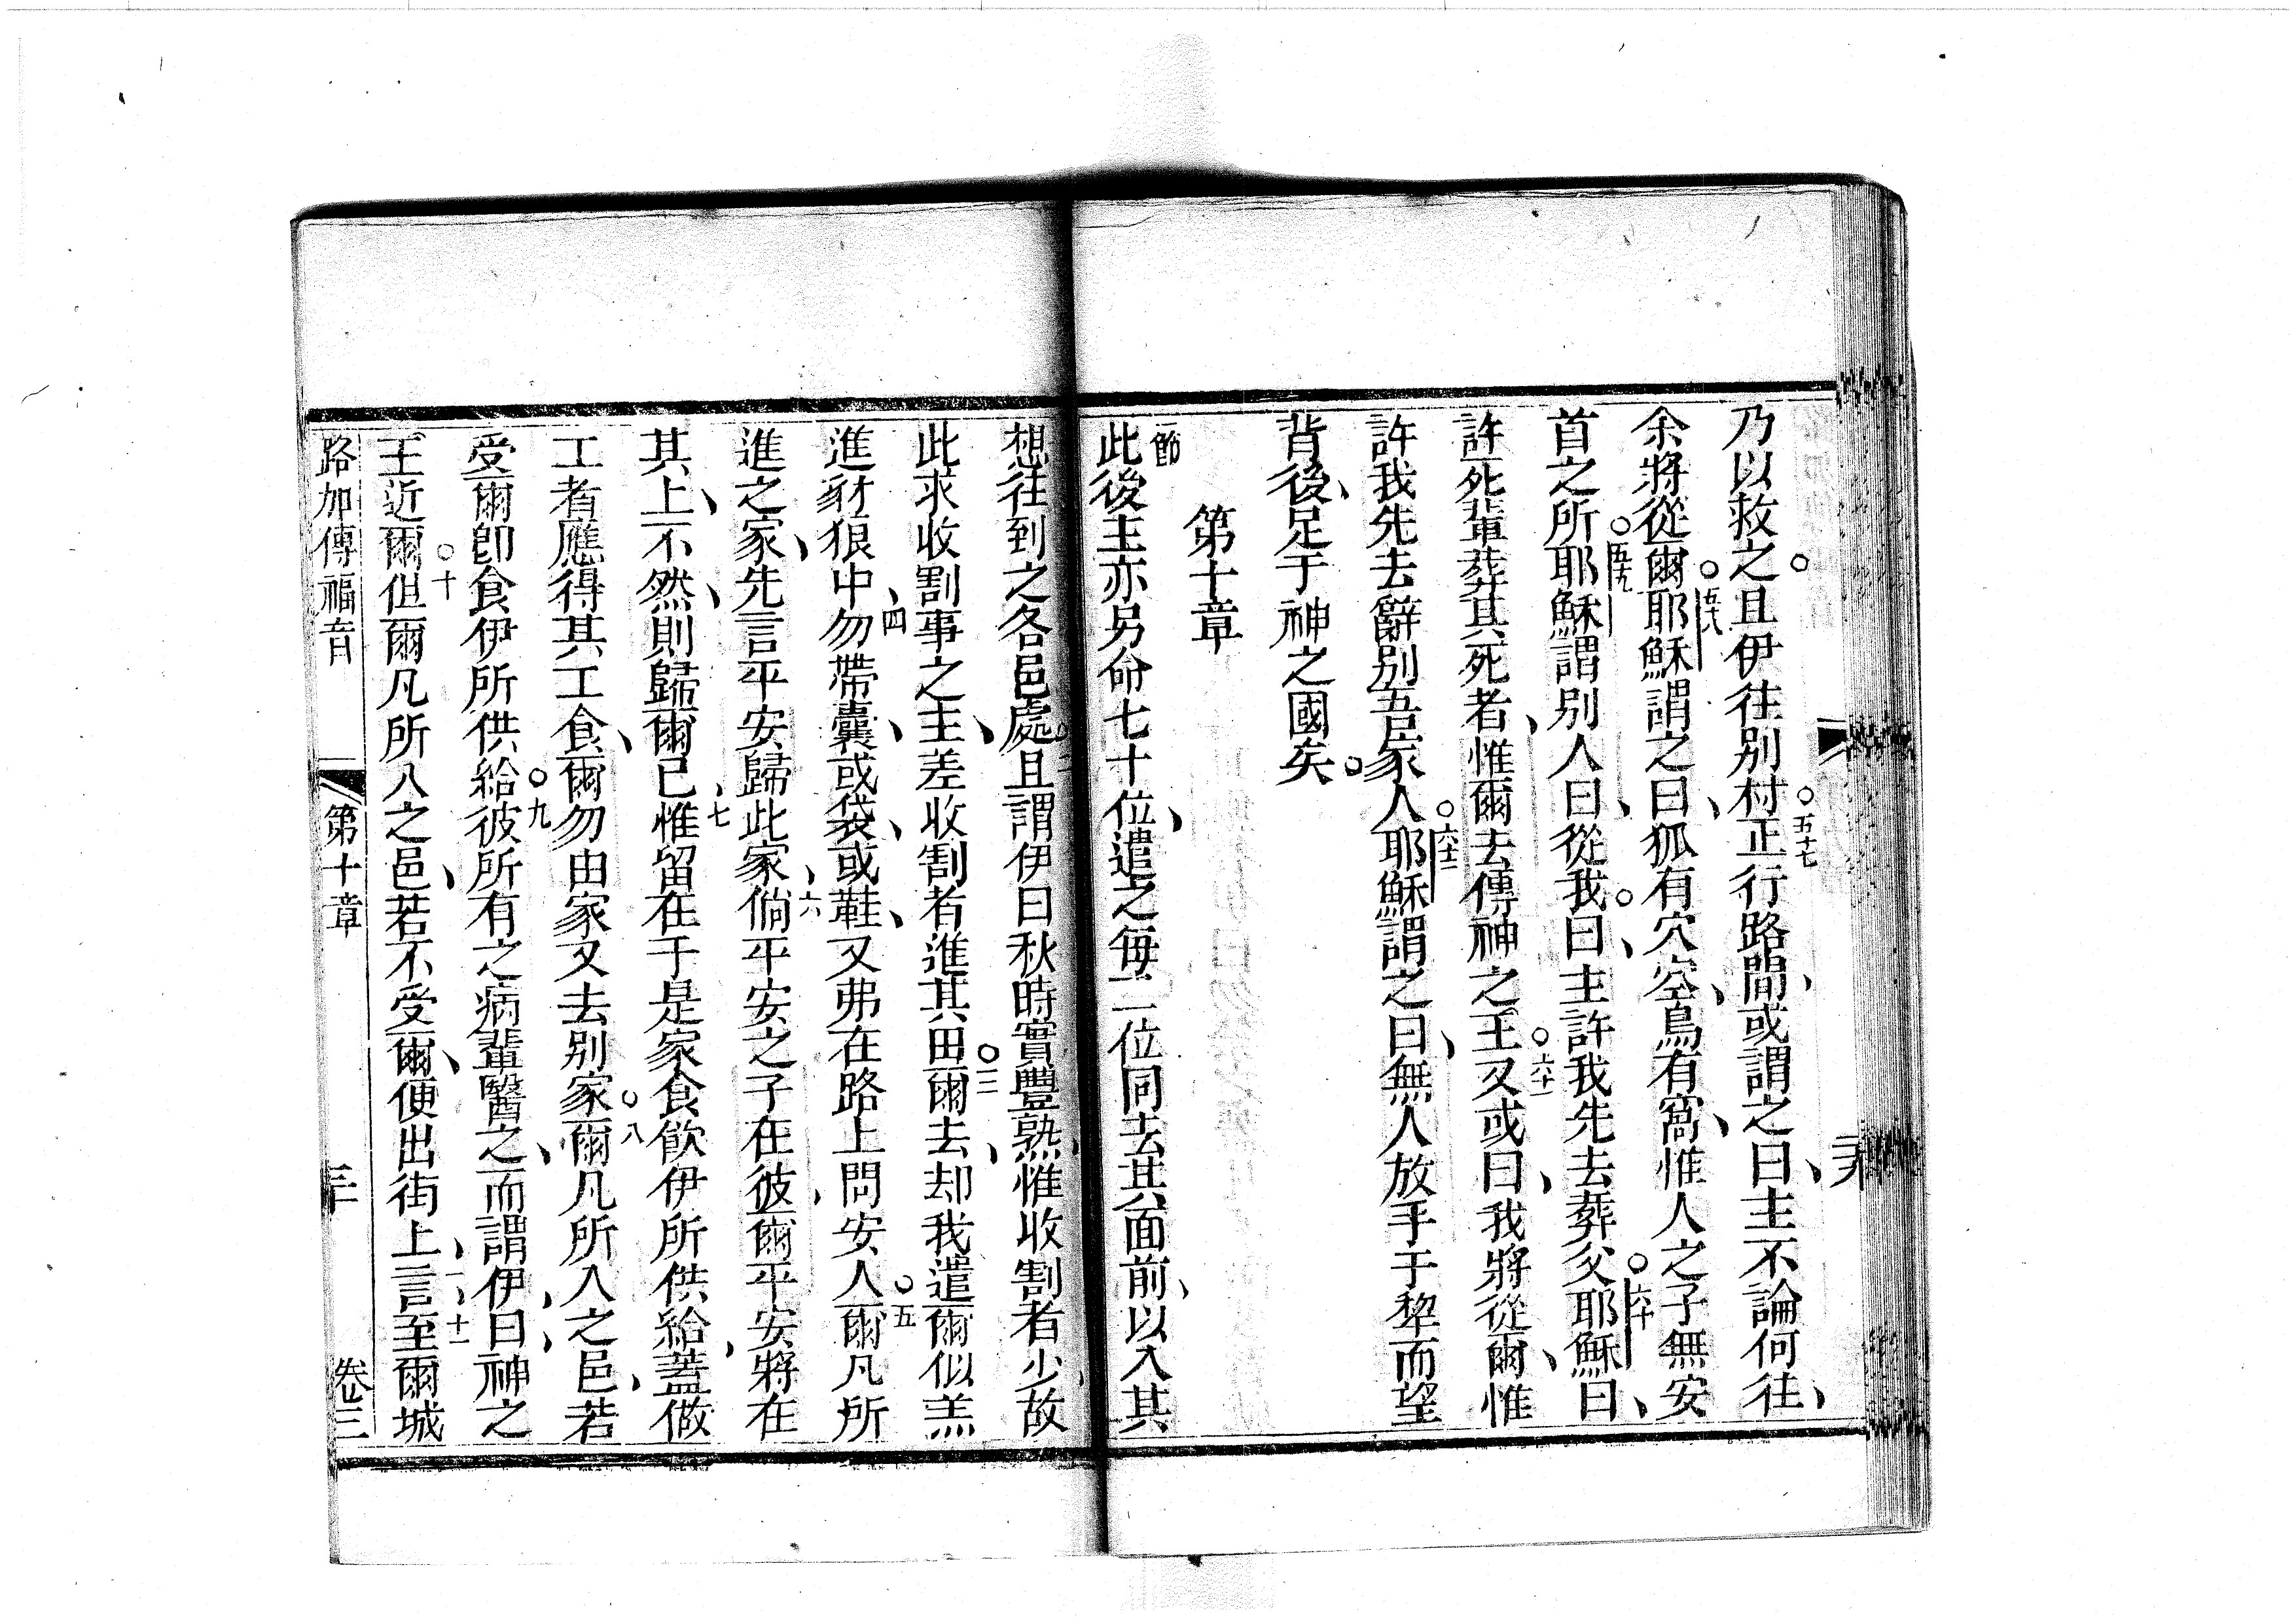 乃以救之。且伊往别村。五十七正行路間、或謂之曰、主不論何往、
余將從爾。五十八耶穌謂之曰、狐有穴空、鳥有窩、惟人之子無安
首之所。五十九耶穌謂别人曰、從我。曰、主許我先去葬父。六十耶穌曰、
許死輩葬其死者、惟爾去傳神之王。六十一又或曰、我將從爾、惟
許我先去辭别吾家人。六十二耶穌謂之曰、無人放手于犂而望
背後、足于神之國矣。
第十章
一節此後主亦另命七十位、遣之每二位同去其面前、以入其
想往到之各邑處。二且謂伊曰秋時實豐熟、惟收割者少、故
此求收割事之主、差收割者進其田。三爾去、却我遣爾似羔
進豺狼中、四勿帶囊、或袋、或鞋、又弗在路上問安人。五爾凡所
進之家、先言平安歸此家、六倘平安之子在彼、爾平安將在
其上、不然、則歸爾已、七惟留在于是家食飲伊所供給、蓋做
工者應得其工食、爾勿由家又去别家。八爾凡所入之邑、若
受爾卽食伊所供給。九彼所有之病輩醫之、而謂伊曰、神之
王近爾。十但爾凡所入之邑、若不受爾、便出街上、言、十一至爾城
路加傳福音 第十章 三十 卷三